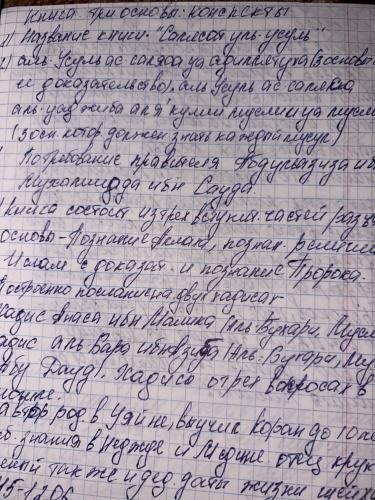 Книга три основы. конспекты
1) Название книги "Саласат уль-усуль"
2) аль-Усуль ас саляса уа адиллятуха (3 основы
и доказательство), аль Усуль ас саляса
аль-уаджиба аля кулли муслим уа мусли
(3 осн. котор. должен знать каждый мусул)
Потребование правителя Абдульазиза ибн
Мухаммада ибн Сауда.
Книга состоит из трех вступит. частей
основы - Познание Аллаха, познан. религии
Ислам с доказат. и познание Пророка.
Построено послание на двух хадисах
Хадис Анаса ибн Малика (Аль-Бухари, Мусл
хадис аль Бара ибн Азиба (Аль-Бухари, Му
Абу Дауд). Хадис о трех вопросах в
могиле.
автор род в Уяйне, выучил Коран до 10 ле
знания в Неджде и Медине отец
также и дед. даты жизни
15-1206